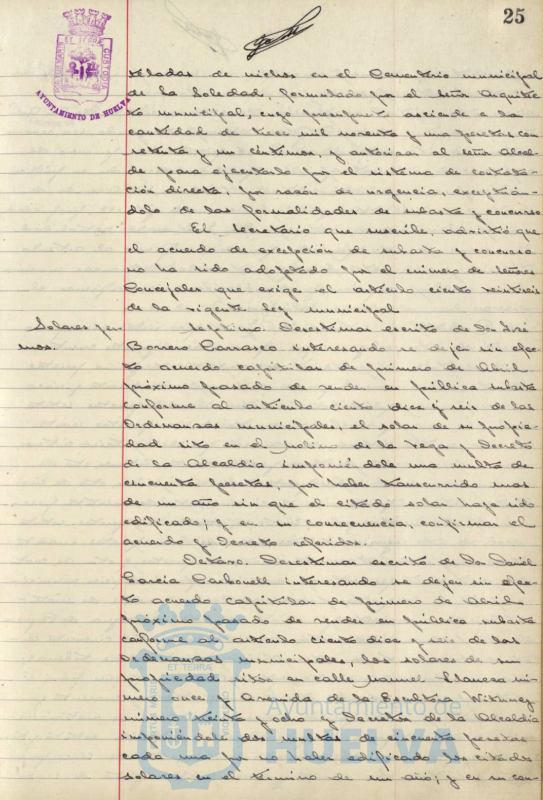 25
AYUNTAMIENTO DE HUELVA
teladas de nichos en el Cementerio municipal
de la Soledad, formulado por el señor Arquitec-
to municipal, cuyo presupuesto asciende a la
cantidad de trece mil noventa y una pesetas con
setenta y un céntimos, y autorizar al señor Alcal-
de para ejecutarlo por el sistema de contrata-
ción directa, por razón de urgencia, exceptuán-
dolo de las formalidades de subasta y concurso
El Secretario que suscribe, advirtió que
el acuerdo de excepción de subasta y concurso
no ha sido adoptado por el número de señores
Concejales que exige el artículo ciento veintiseis
de la vigente Ley municipal
Solares yer-
mos.
Septimo. Desestimar escrito de Don José
Borrero Carrasco interesando se dejen sin efec-
to acuerdo capitular de primero de Abril
próximo pasado de vender en pública subasta
conforme al artículo ciento diez y seis de las
Ordenanzas municipales, el solar de su propie-
dad sito en el Molino de la Vega y Decreto
de la Alcaldia imponiéndole una multa de
cincuenta pesetas, por haber transcurrido mas
de un año sin que el citado solar haya sido
edificado; y en su consecuencia, confirmar el
acuerdo y Decreto referidos.
Octavo. Desestimar escrito de Don Daniel
Garcia Carbonell interesando se dejen sin efec-
to acuerdo capitular de primero de Abril
próximo pasado de vender en pública subasta
conforme al artículo ciento diez y seis de las
Ordenanzas municipales, los solares de su
propiedad sitos en calle Manuel nú-
mero once y Avenida de la Escultora Whitney
número treinta y ocho y Decretos de la Alcaldia
imponiéndole dos multas de cincuenta pesetas
cada una por no haber edificado los citados
solares en el término de un año; y en su con-
Ayuntamiento de
HUELVA